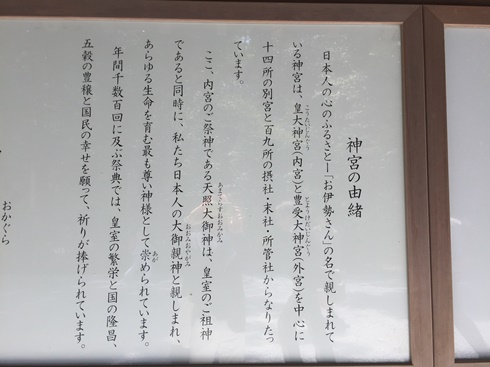 神宮の由緒
日本人の心のふるさと―「お伊勢さん」の名で親しまれて
いる神宮は、皇大神宮(内宮)と豊受大神宮(外宮)を中心に
十四所の別宮と百九所の摂社・末社・所管社からなりたっ
ています。
ここ、内宮のご祭神である天照大御神は、皇室のご祖神
であると同時に、私たち日本人の大御親神と親しまれ、
あらゆる生命を育む最も尊い神様として崇められています。
年間千数百回に及ぶ祭典では、皇室の繁栄と国の隆昌、
五穀の豊穣と国民の幸せを願って、祈りが捧げられています。
おかぐら